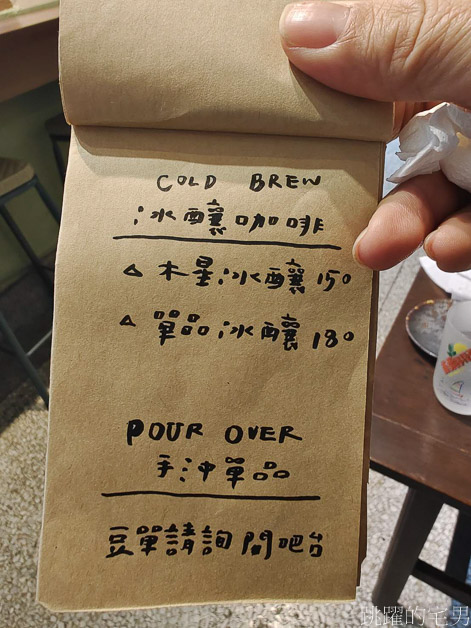 COLD BREW
冰釀咖啡
△ 木星冰釀 150
△ 單品冰釀 180
POUR OVER
手沖單品
豆單請詢問吧台
跳躍的宅男